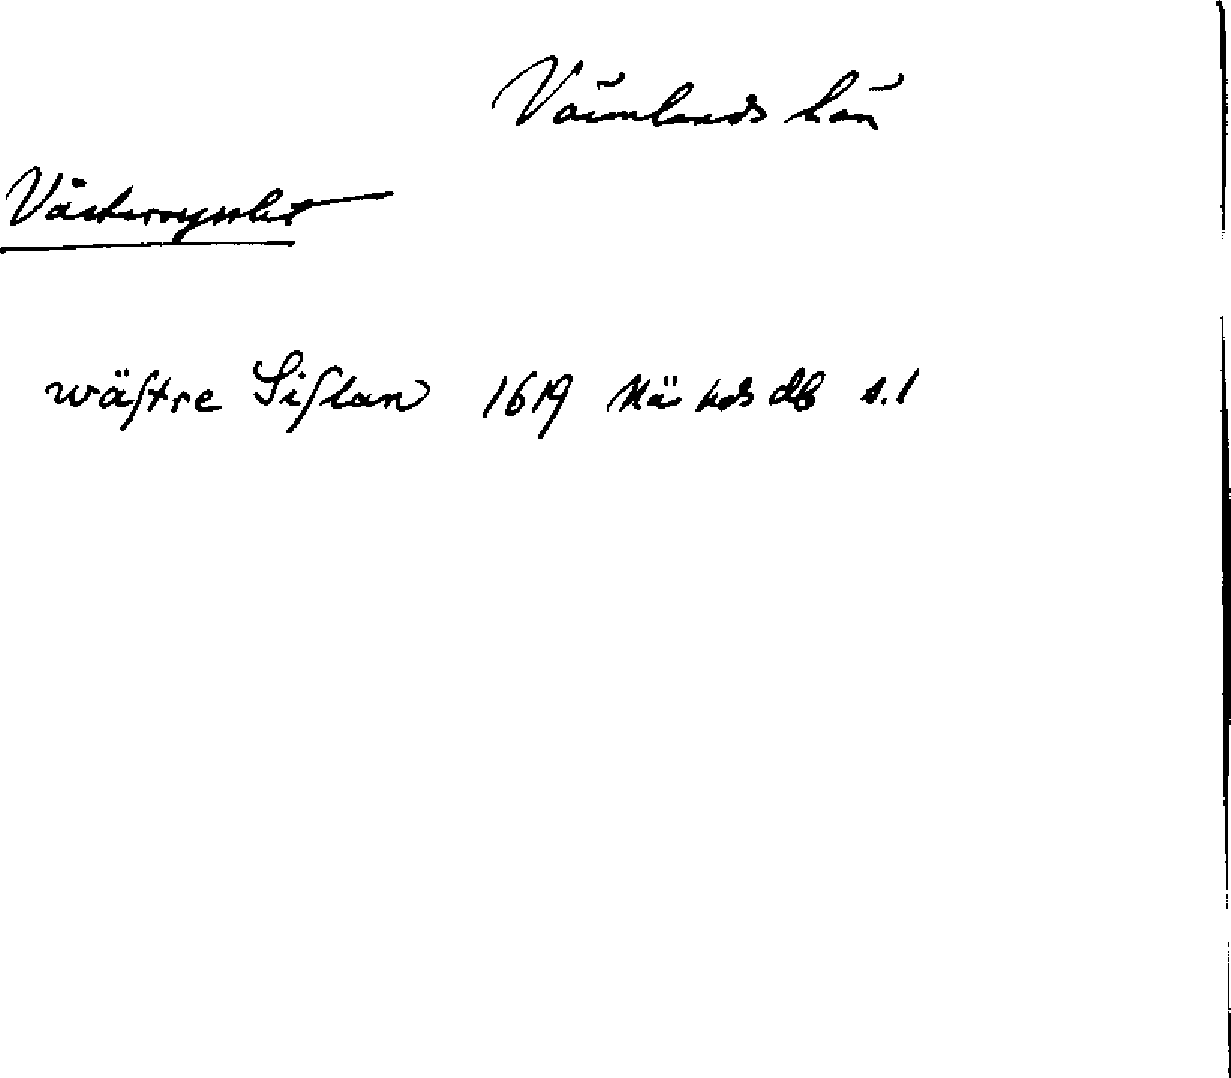 Värmlands län
Västersysslet
wäſtre Siſlan 1619 Nä hds db s. 1